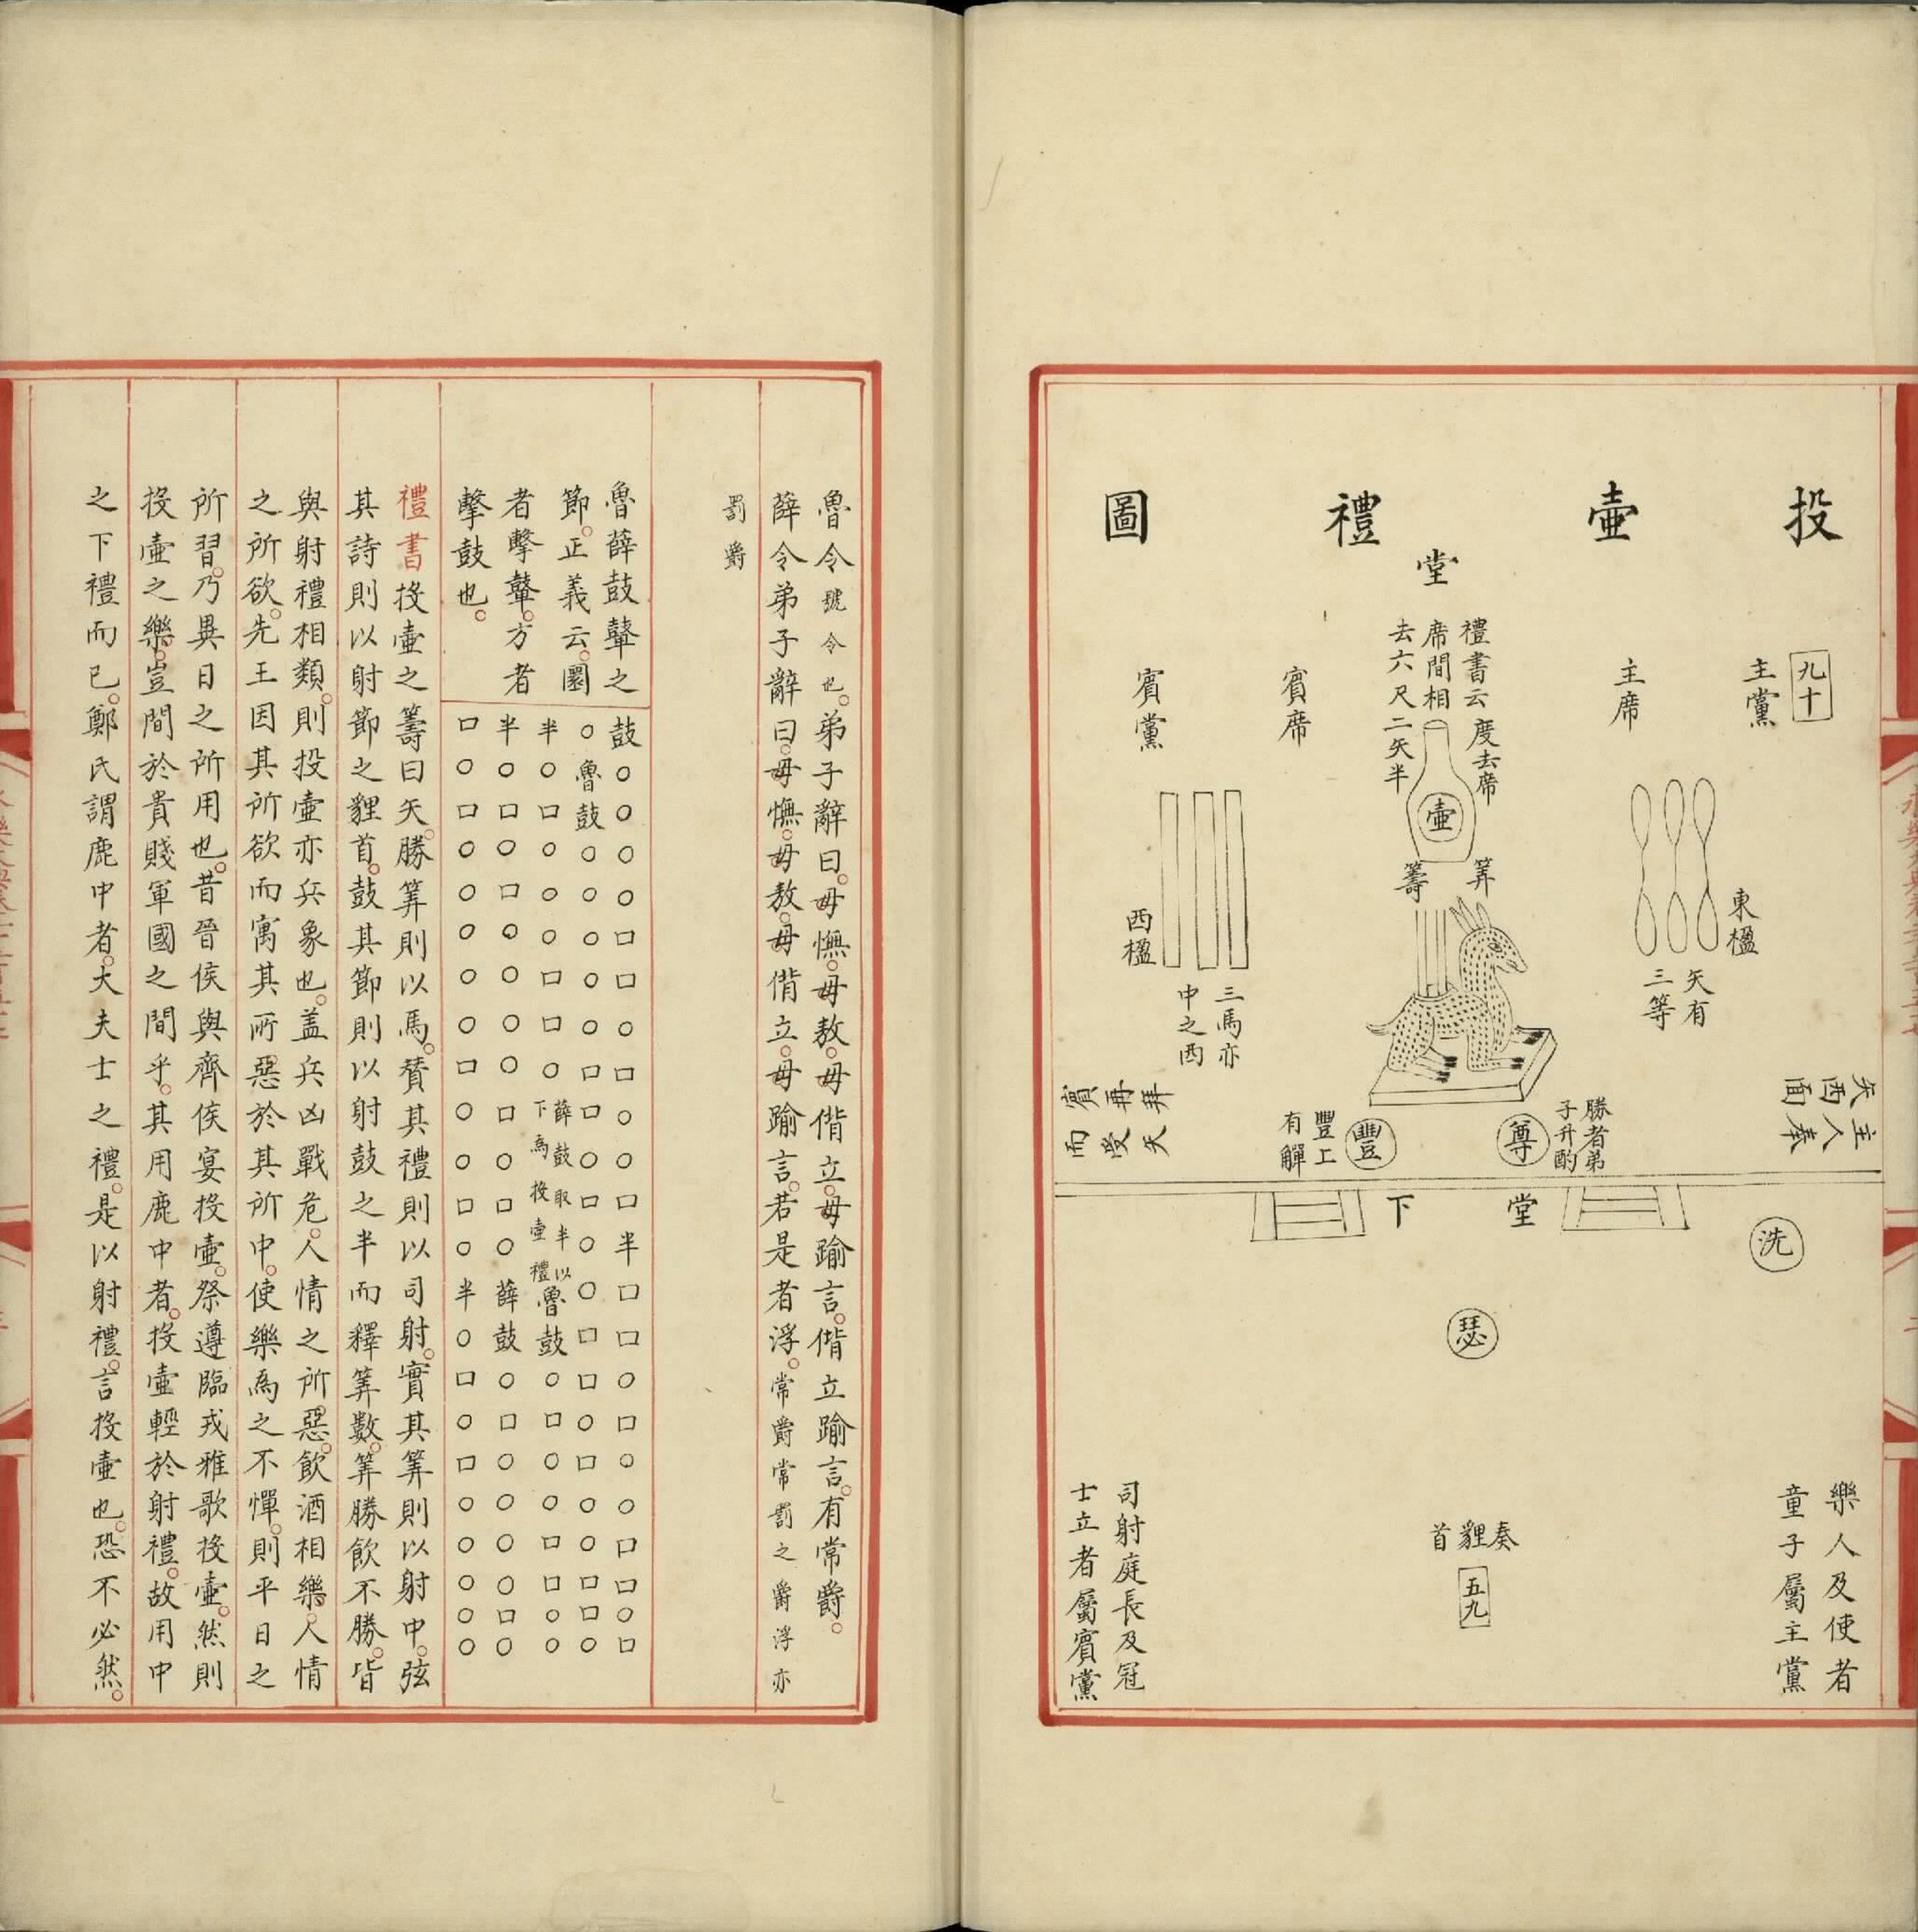 投壺禮圖
堂
九十
主黨
主席
禮書云
席間相
去六尺二矢半
度去席
賓席
賓黨
壺
筭
籌
東楹
矢有
三等
西楹
三馬亦
中之西
主人奉
矢西面
賓再拜
而受矢
勝者弟
子升酌
尊
豐
豐上
有觶
堂下
洗
瑟
奏貍首
五九
樂人及使者
童子屬主黨
司射庭長及冠
士立者屬賓黨
魯令號令也弟子辭曰毋憮毋敖毋偝立毋踰言偝立踰言有常爵
薛令弟子辭曰毋憮毋敖毋偝立毋踰言若是者浮常爵常罰之爵浮亦
罰爵
魯薛鼓鼙之
節正義云圜
者擊鼙方者
擊鼓也
鼓○○○○□□○□○□半□□○□○○□□○□
○魯鼓○○○○○□□○□○○□□○□○○□○
半○□○○○□□○薛鼓取半以下為投壺禮魯鼓○□○○□□○○
半○□○□○○○○□○□○薛鼓○□○○○○□○
□○□○○○○○□○□○半○□○□○○○○○
禮書投壺之籌曰矢勝筭則以馬贊其禮則以司射實其筭則以射中弦
其詩則以射節之貍首鼓其節則以射鼓之半而釋筭數筭勝飲不勝皆
與射禮相類則投壺亦兵象也蓋兵凶戰危人情之所惡飲酒相樂人情
之所欲先王因其所欲而寓其所惡於其所中使樂為之不憚則平日之
所習乃異日之所用也昔晉侯與齊侯宴投壺祭遵臨戎雅歌投壺然則
投壺之樂豈間於貴賤軍國之間乎其用鹿中者投壺輕於射禮故用中
之下禮而已鄭氏謂鹿中者大夫士之禮是以射禮言投壺也恐不必然